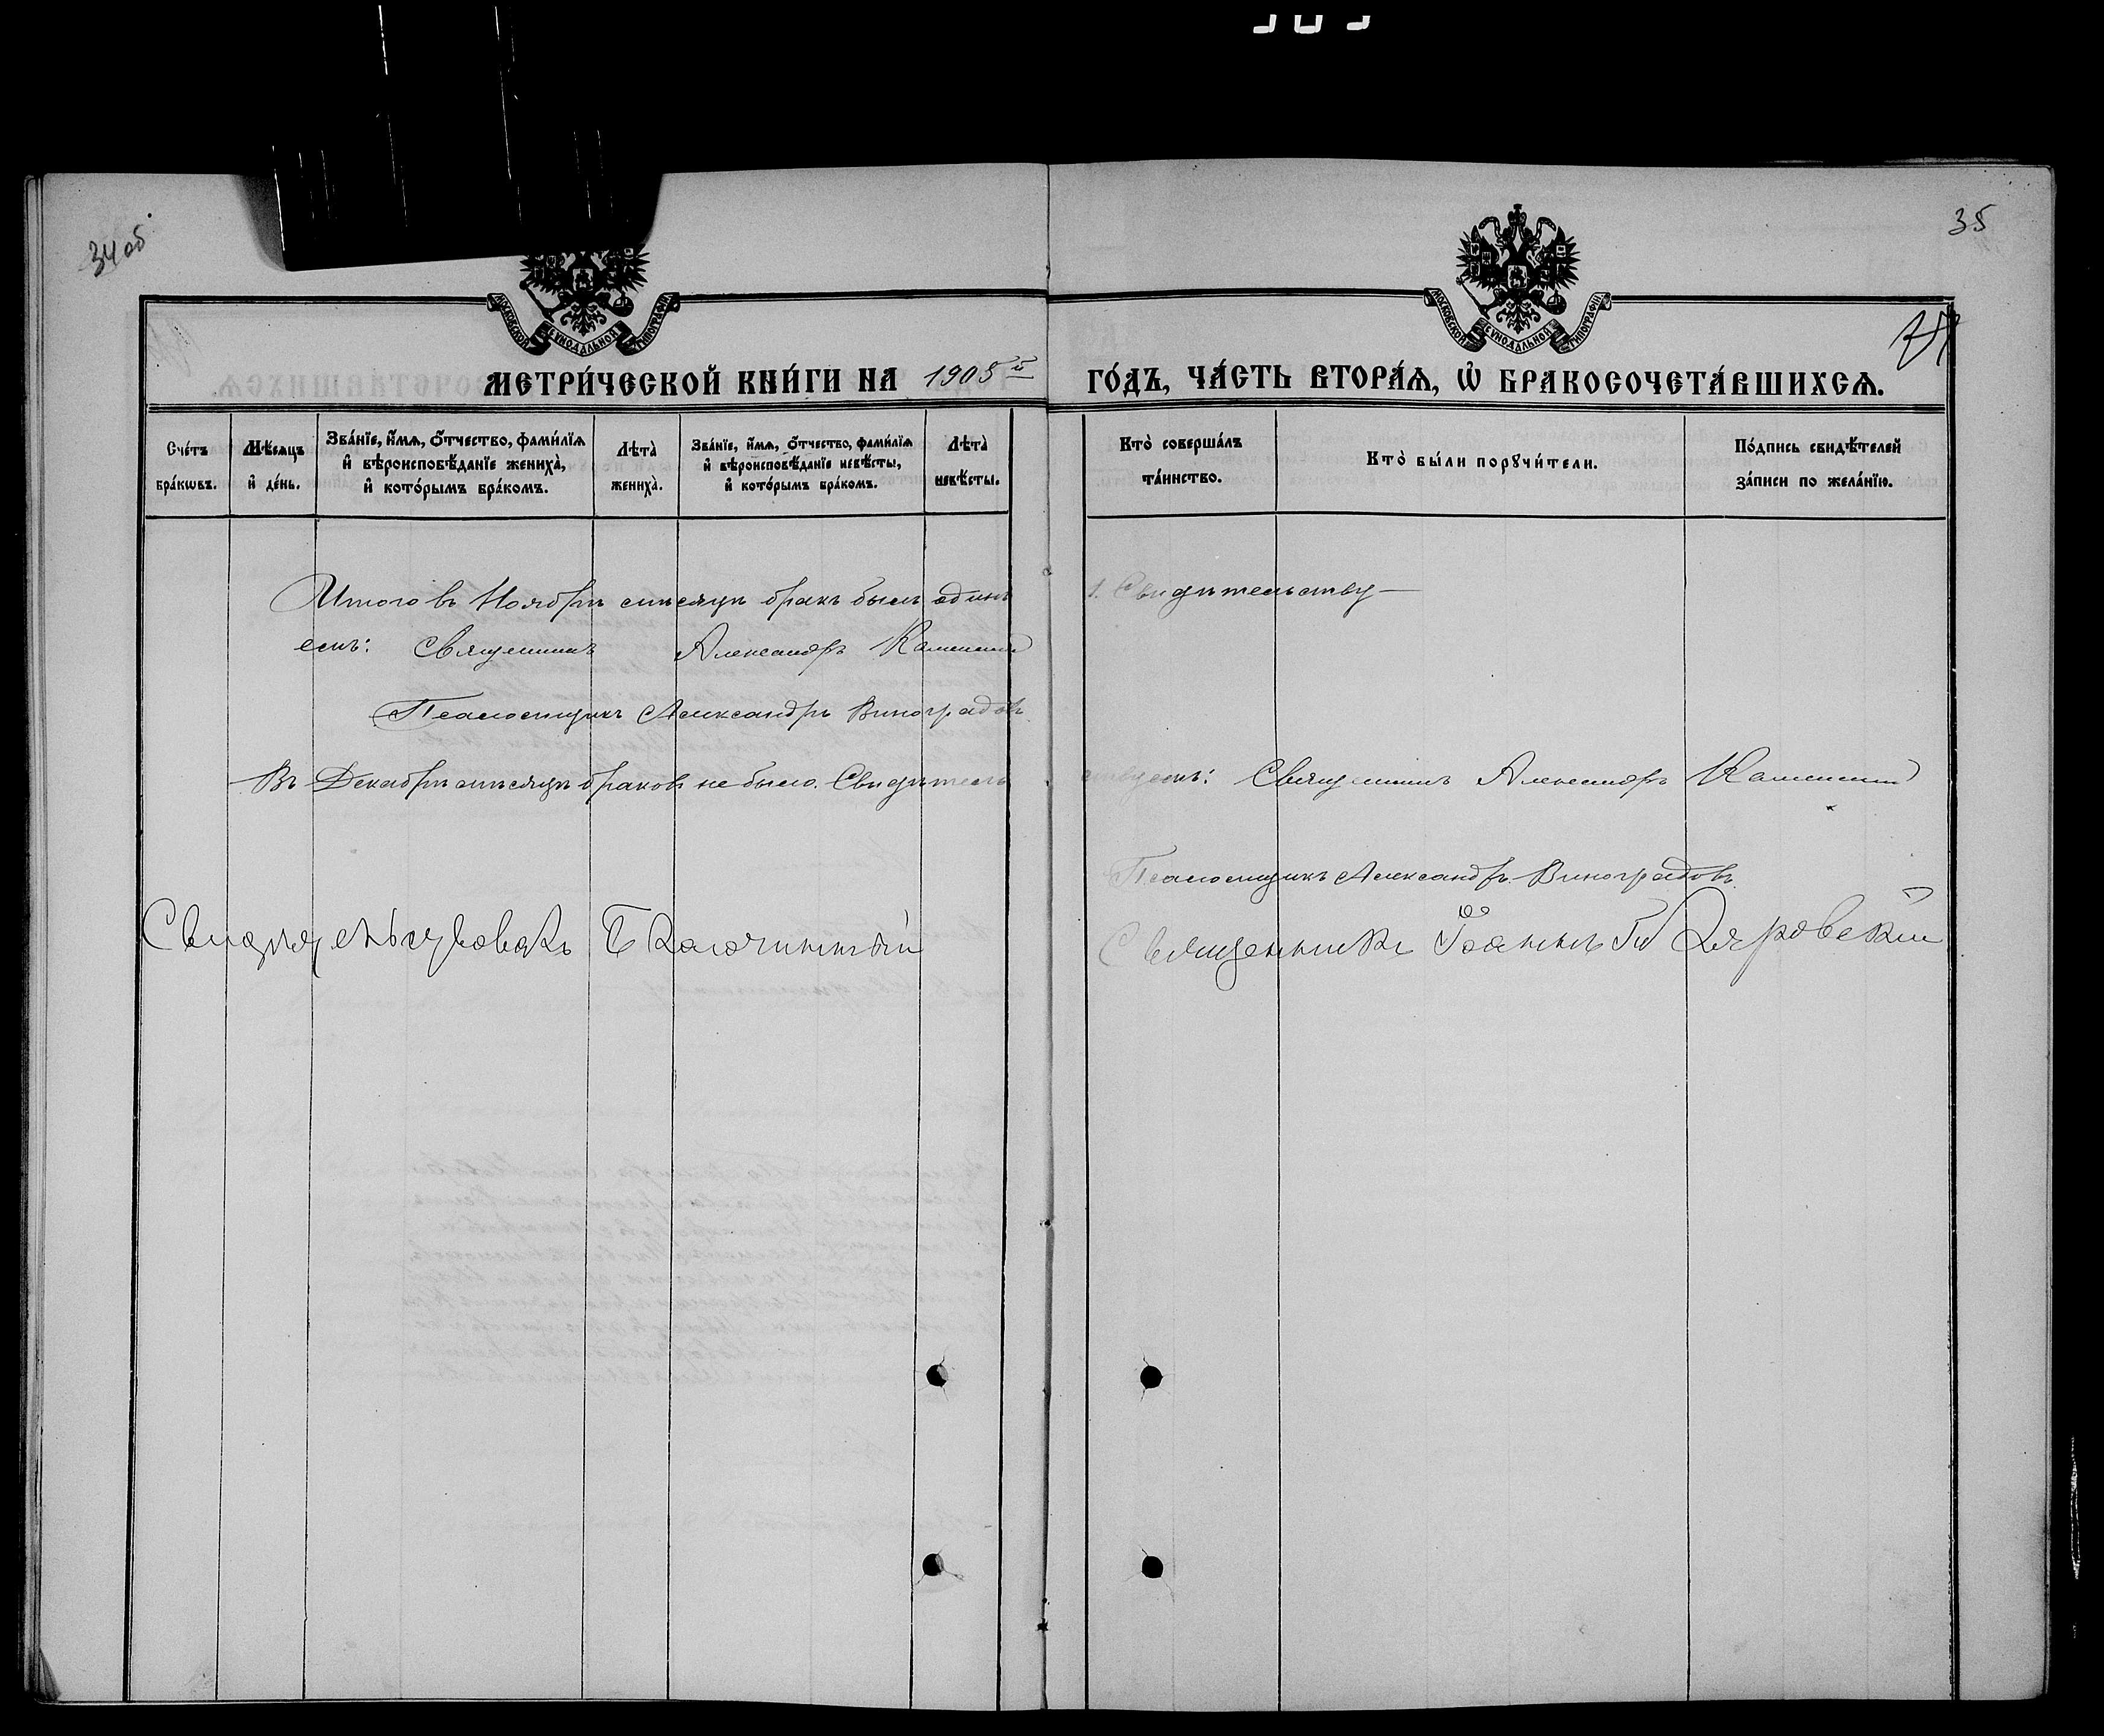 34 об
35
МОСКОВСКОЙ СУНОДАЛЬНОЙ ТИПОГРАФІИ
МОСКОВСКОЙ СУНОДАЛЬНОЙ ТИПОГРАФІИ
МЕТРИ́ЧЕСКОЙ КНИ́ГИ НА 1905й ГО́ДЪ, ЧА́СТЬ ВТОРА́Ѧ, Ѡ҆ БРАКОСОЧЕТА́ВШИХСѦ.
Сче́тъ бра́кѡвъ.
Мѣ́сяцъ и҆ де́нь.
Зва́нїе, и҆́мѧ, о҆́тчество, фами́лїѧ и҆ вѣроисповѣ́данїе жениха̀, и҆ кото́рымъ бра́комъ.
Лѣта̀ жениха̀.
Зва́нїе, и҆́мѧ, о҆́тчество, фами́лїѧ и҆ вѣроисповѣ́данїе невѣ́сты, и҆ кото́рымъ бра́комъ.
Лѣта̀ невѣ́сты.
Кто̀ соверша́лъ та́инство.
Кто̀ бы́ли порꙋчи́тели.
По́дпись свидѣ́телей за́писи по жела́нїю.
Итого въ Ноябрѣ мѣсяцѣ бракъ былъ одинъ 1. Свидѣтельству—
емъ: Священникъ Александръ Каменскій
Псаломщикъ Александръ Виноградовъ.
Въ Декабрѣ мѣсяцѣ браковъ не было. Свидѣтель ствуемъ: Священникъ Александръ Каменскій
Псаломщикъ Александръ Виноградовъ.
Свидѣтельствовалъ Благочинный Священникъ Іоаннъ